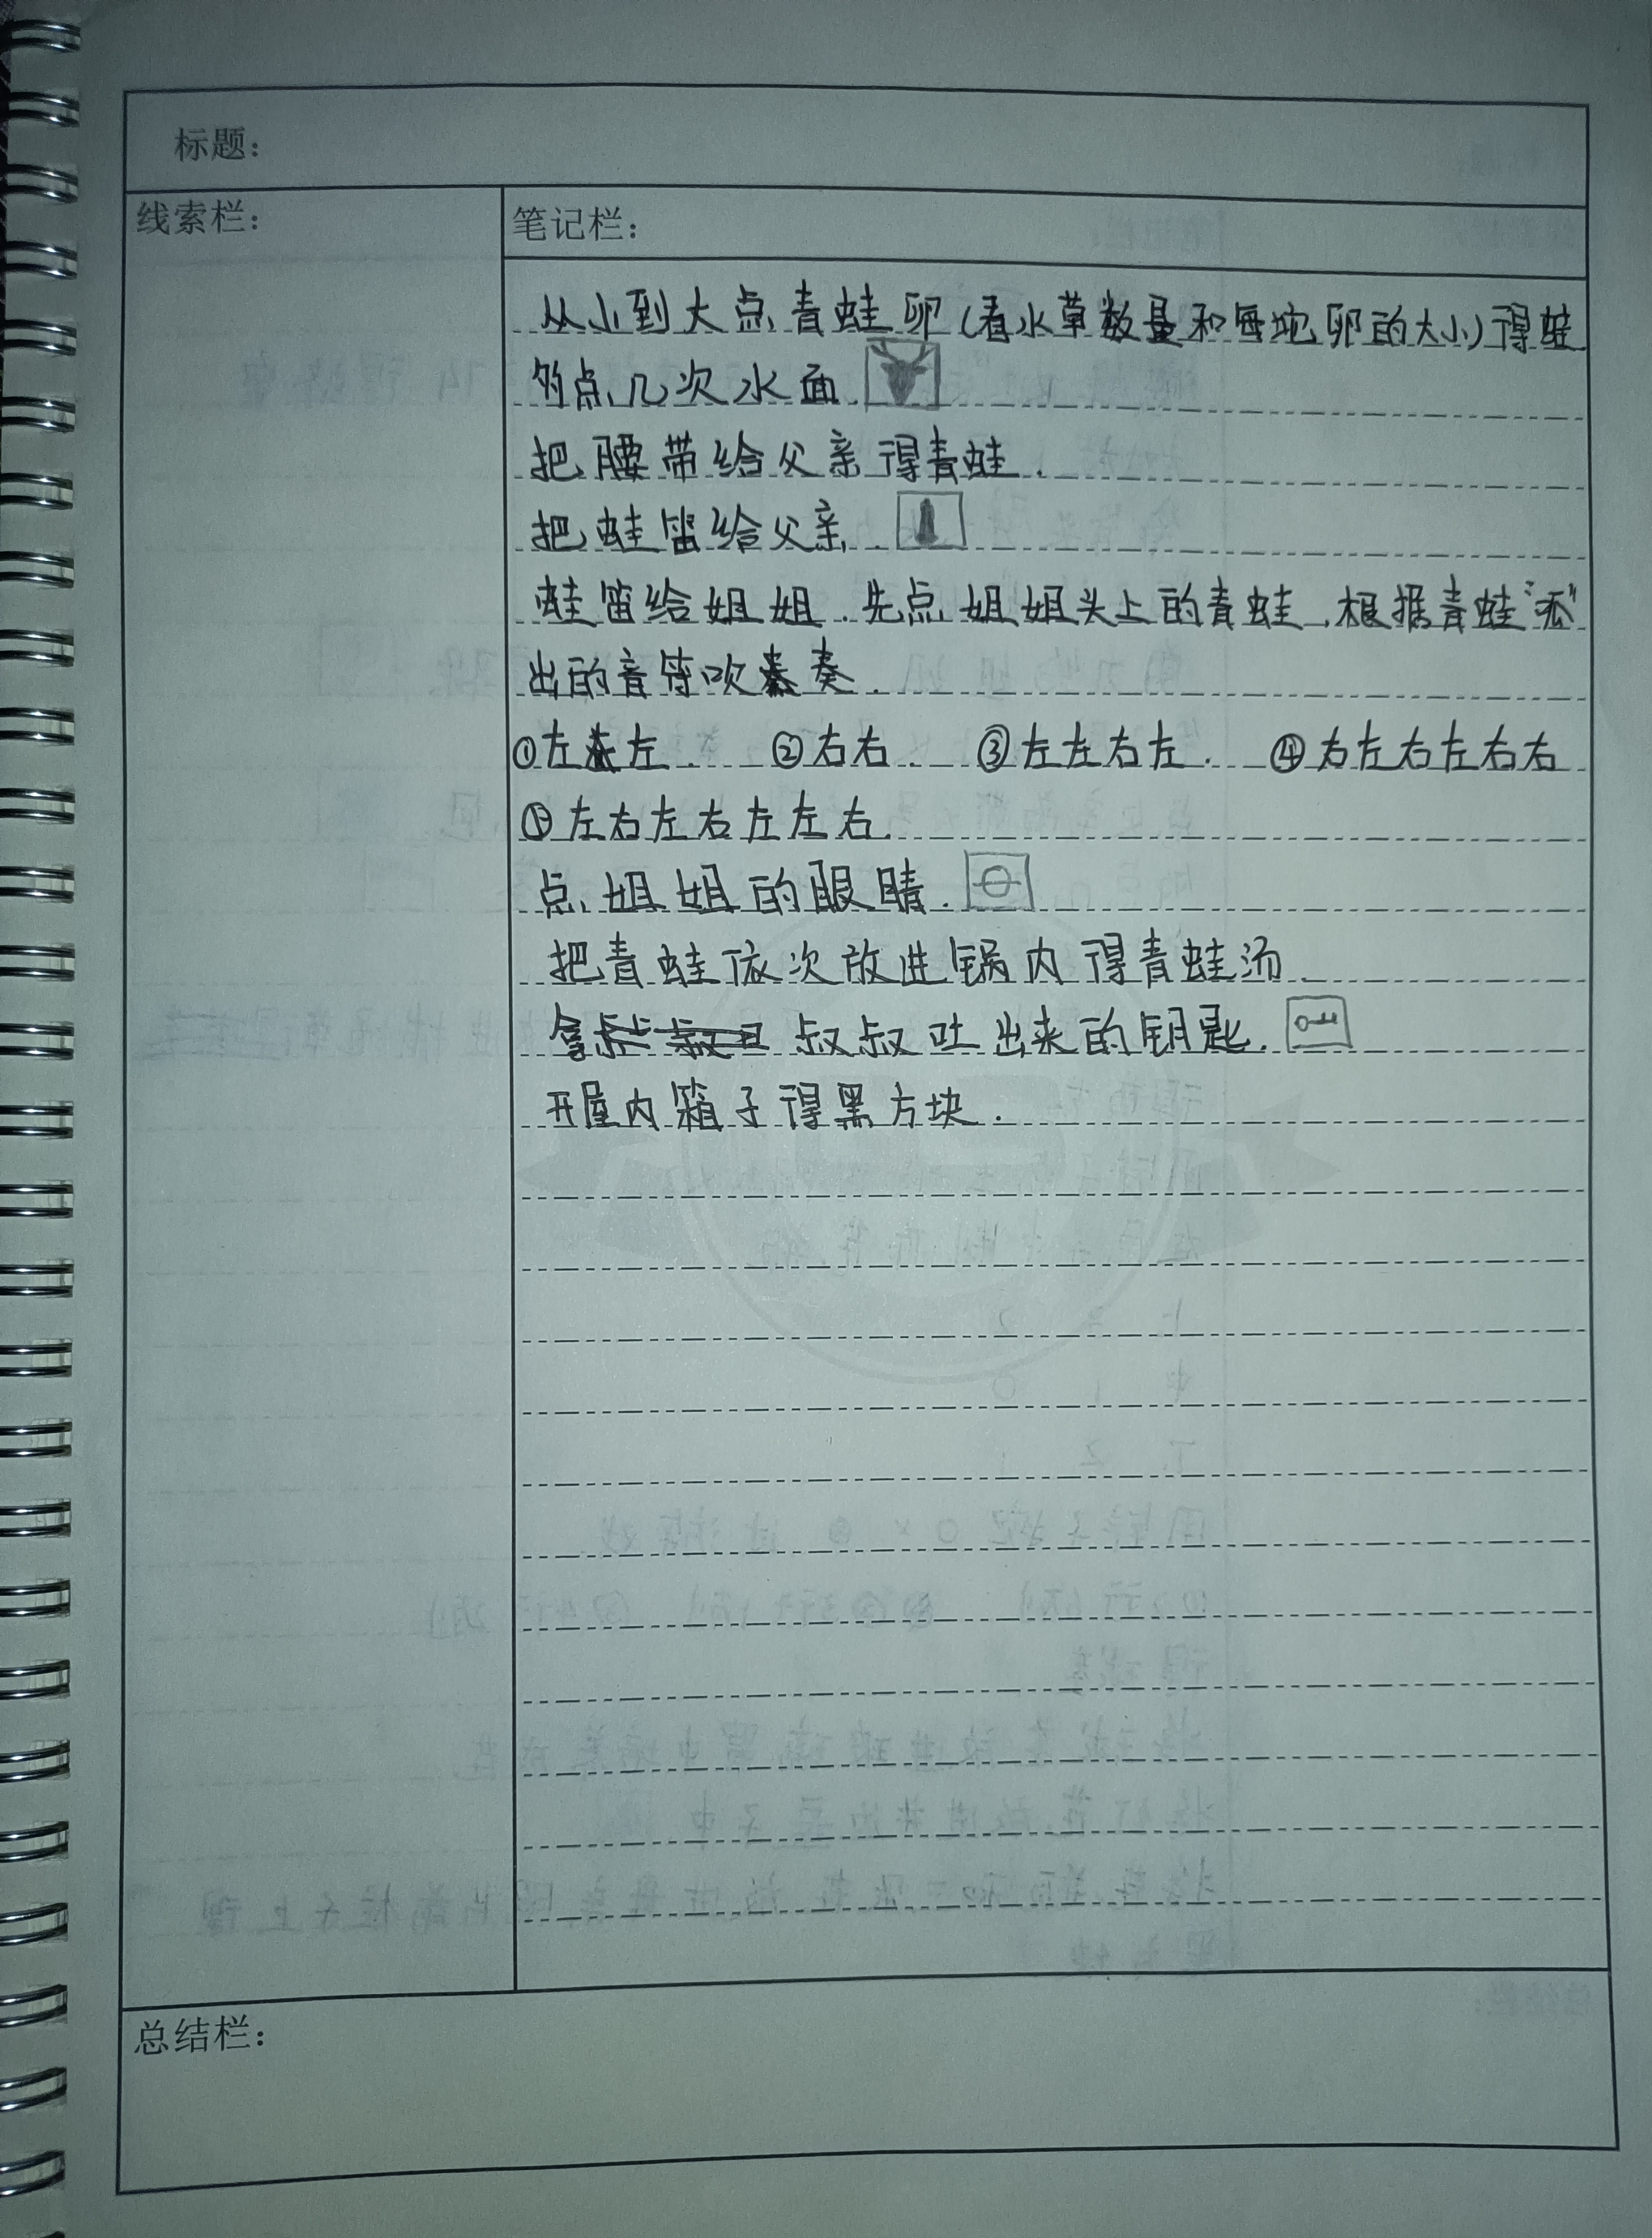 标题：
线索栏：
笔记栏：
从小到大点青蛙卵(看水草数量和每坨卵的大小)得蛙
的点几次水面
把腰带给父亲得青蛙.
把蛙笛给父亲.
蛙笛给姐姐.先点姐姐头上的青蛙,根据青蛙"派"
出的音符吹奏.
①左左. ②右右. ③左左右左. ④右左右左右右
⑤左右左右左左右.
点姐姐的眼睛.
把青蛙依次放进锅内得青蛙汤
拿叔叔吐出来的钥匙.
开屋内箱子得黑方块.
总结栏：